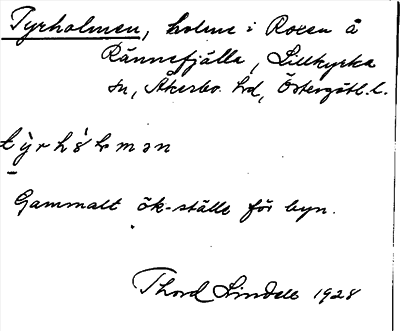 Tyrholmen, holme i Roxen å
Rännefjälla, Lillkyrka
sn, Åkerbo hd, Östergötl. l.
tỳrhól̵mən
Gammalt ök-ställe för byn.
Thord Lindell 1928